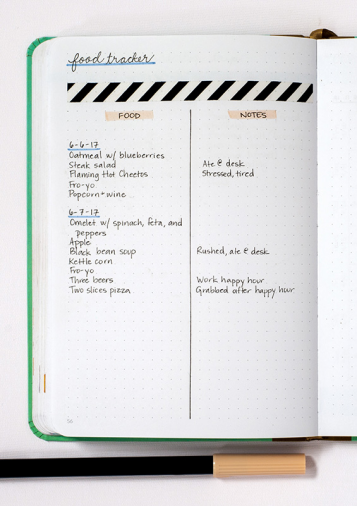 food tracker
FOOD
NOTES
6-6-17
Oatmeal w/ blueberries
Steak salad
Ate @ desk
Flaming Hot Cheetos
Stressed, tired
Fro-yo
Popcorn + wine
6-7-17
Omelet w/ spinach, feta, and
peppers
Apple
Black bean soup
Rushed, ate @ desk
Kettle corn
Fro-yo
Three beers
Work happy hour
Two slices pizza
Grabbed after happy hour